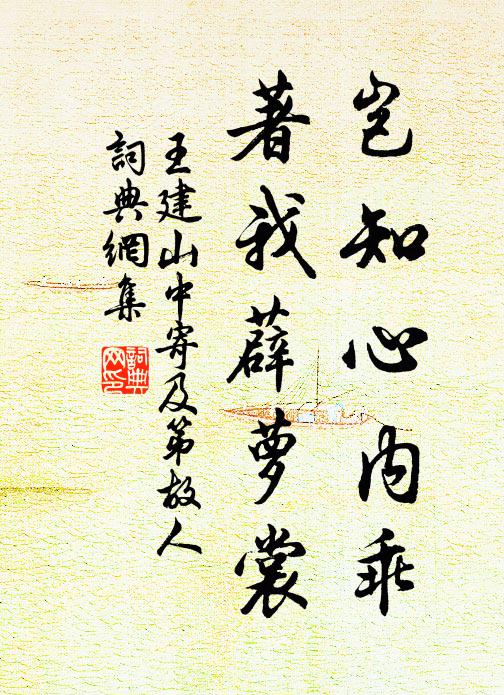 岂知心内乖
著我薜萝裳
王建山中寄及第故人
詞典網集
詞典
网印